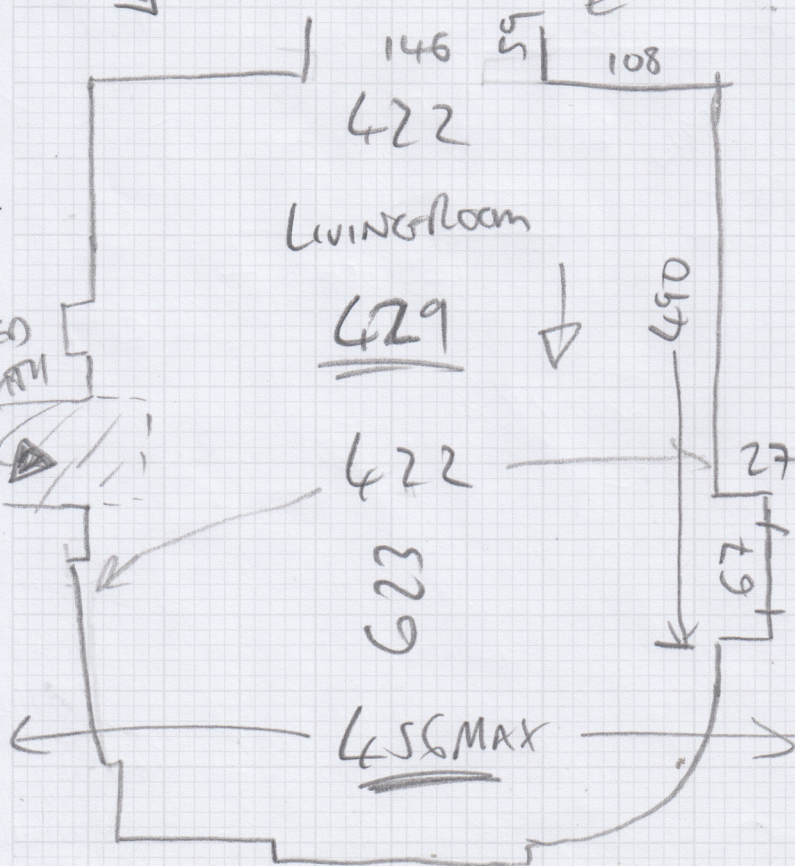 146 59 108
422
LIVINGROOM
429
490
422
27
623
67
456MAX